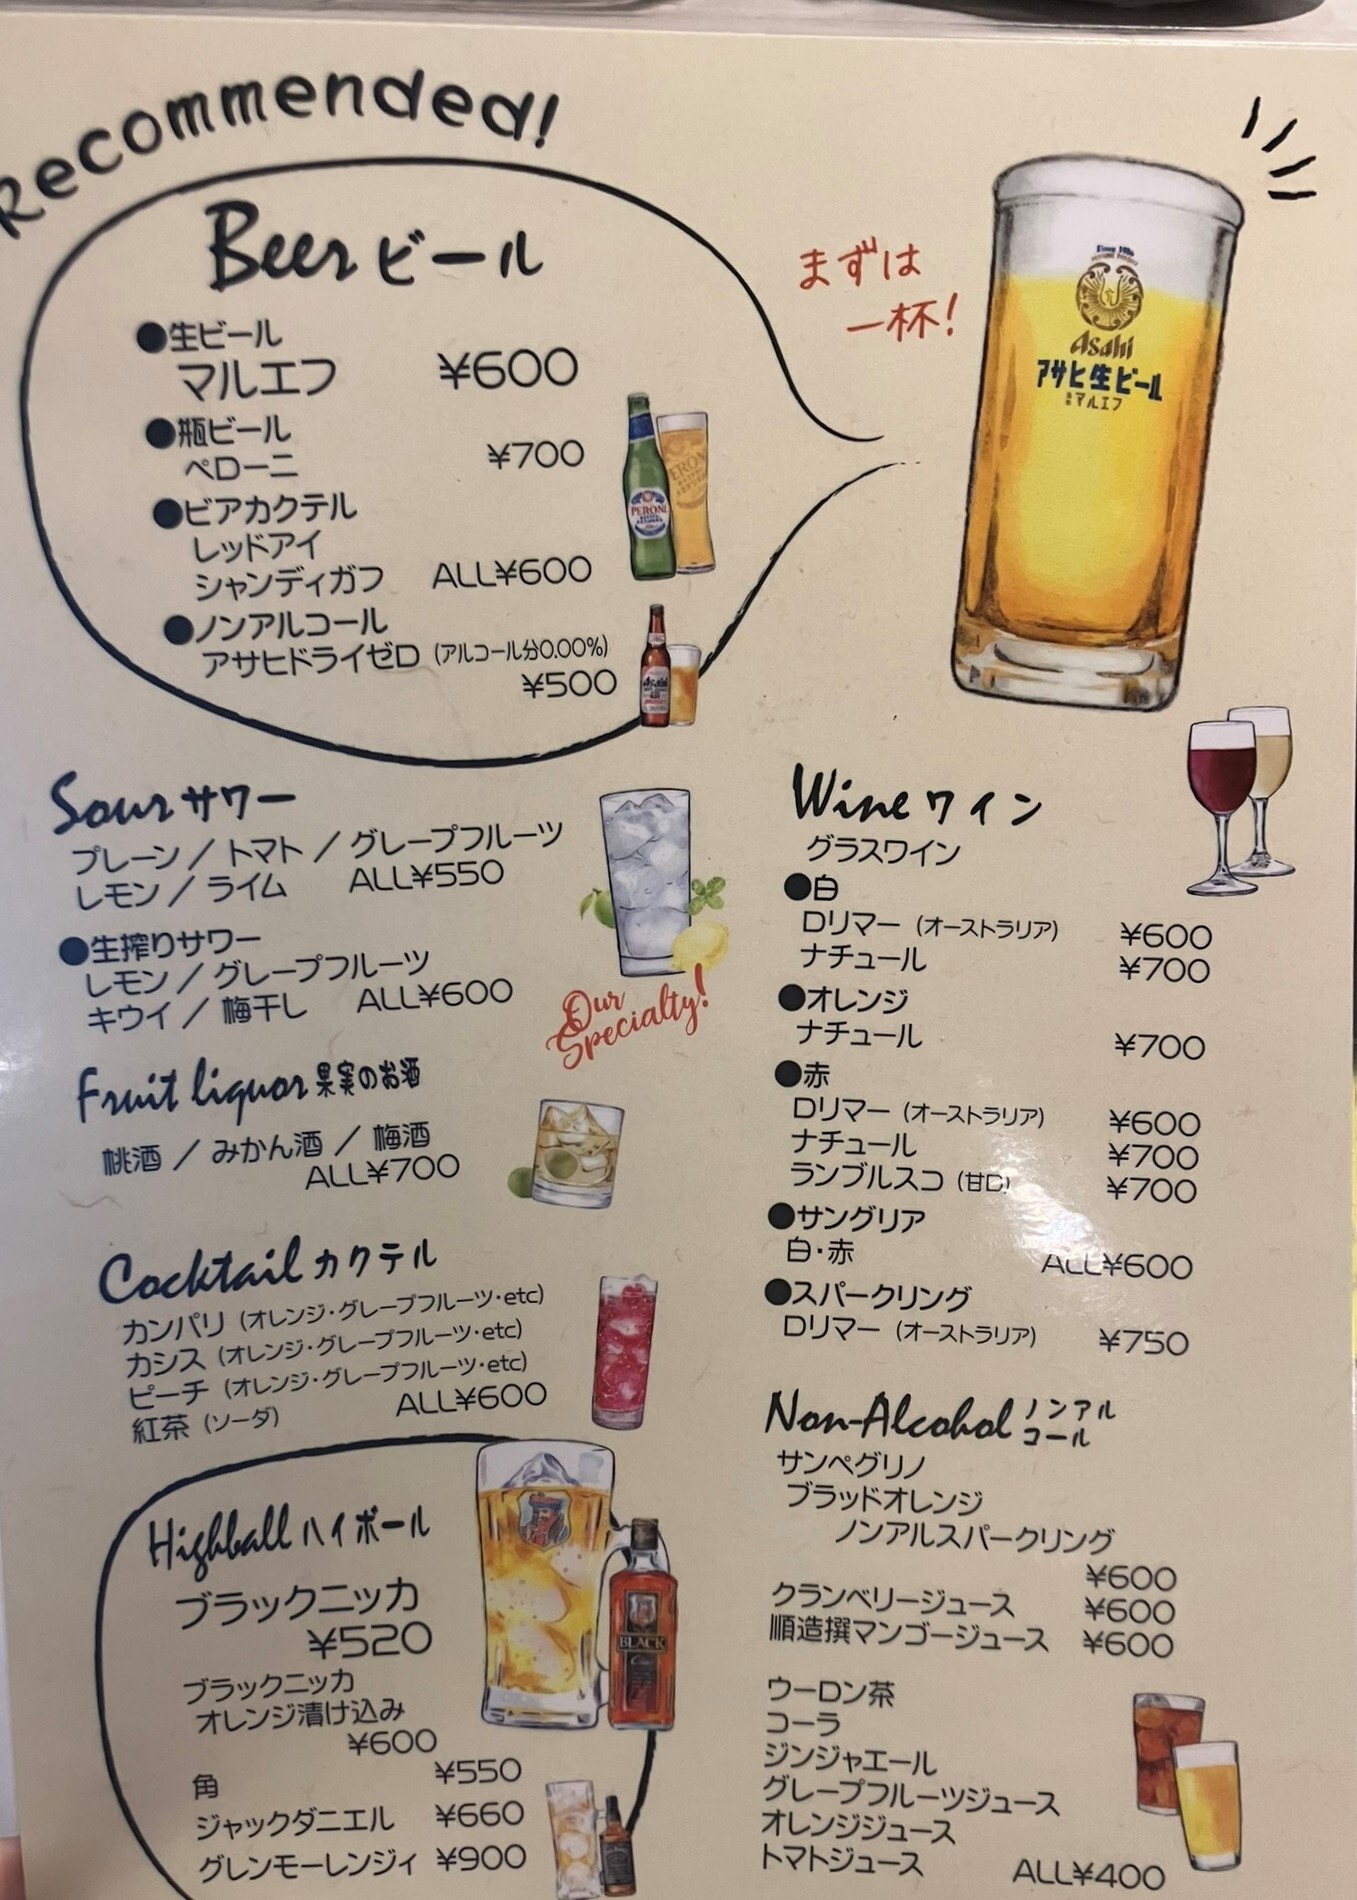 Recommended!
Beer ビール
●生ビール
マルエフ ¥600
●瓶ビール
ペローニ ¥700
●ビアカクテル
レッドアイ
シャンディガフ ALL¥600
●ノンアルコール
アサヒドライゼロ (アルコール分0.00%)
¥500
まずは
一杯!
Asahi
アサヒ生ビール
マルエフ
PERONI
Asahi
Sour サワー
プレーン / トマト / グレープフルーツ
レモン / ライム ALL¥550
●生搾りサワー
レモン / グレープフルーツ
キウイ / 梅干し ALL¥600
Our
Specialty!
Fruit liquor 果実のお酒
桃酒 / みかん酒 / 梅酒
ALL¥700
Cocktail カクテル
カンパリ (オレンジ・グレープフルーツ・etc)
カシス (オレンジ・グレープフルーツ・etc)
ピーチ (オレンジ・グレープフルーツ・etc)
紅茶 (ソーダ) ALL¥600
Highball ハイボール
ブラックニッカ
¥520
ブラックニッカ
オレンジ漬け込み
¥600
角 ¥550
ジャックダニエル ¥660
グレンモーレンジィ ¥900
BLACK
Wine ワイン
グラスワイン
●白
ロリマー (オーストラリア) ¥600
ナチュール ¥700
●オレンジ
ナチュール ¥700
●赤
ロリマー (オーストラリア) ¥600
ナチュール ¥700
ランブルスコ (甘口) ¥700
●サングリア
白・赤 ALL¥600
●スパークリング
ロリマー (オーストラリア) ¥750
Non-Alcohol ノンアル
コール
サンペグリノ
ブラッドオレンジ
ノンアルスパークリング
¥600
クランベリージュース ¥600
順造撰マンゴージュース ¥600
ウーロン茶
コーラ
ジンジャエール
グレープフルーツジュース
オレンジジュース
トマトジュース ALL¥400